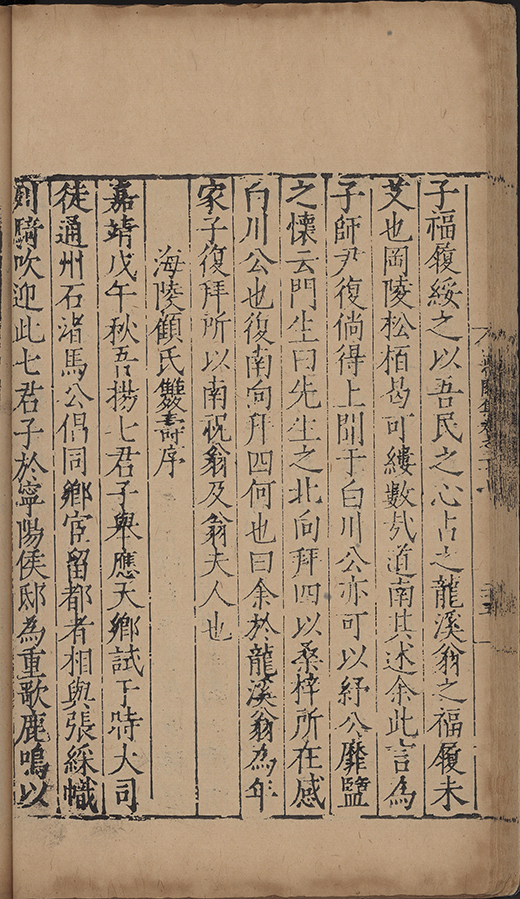 子福履綏之以吾民之心占之龍溪翁之福履未
艾也岡陵松栢曷可縷數㢤道南其述余此言為
子師尹復倘得上聞于白川公亦可以紓公靡盬
之懷云門生曰先生之北向拜四以桑梓所在感
白川公也復南向拜四何也曰余於龍溪翁為年
家子復拜所以南祝翁及翁夫人也
海陵顧氏雙壽序
嘉靖戊午秋吾揚七君子舉應天鄉試于時大司
徒通州石渚馬公偕同鄉宦留都者相與張綵幟
則騎吹迎此七君子於寧陽侯邸為重歌鹿鳴以